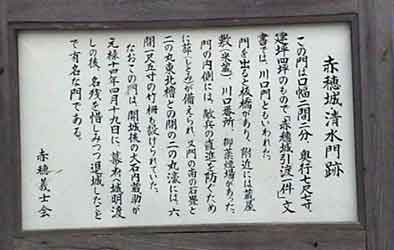 赤穂城清水門跡
この門は口幅二間二分 奥行七尺七寸、
建坪四坪のもので「赤穂城引渡一件」文
書では、川口門ともいわれた。
門を出ると板橋があり、附近には蔵屋
敷(米蔵)川口番所、御薬煙場があった。
門の内側には、敵兵の直進を防ぐため
に蔀(しとみ)が備えられ、又門の南の石畳と
二の丸東北櫓との間の二の丸濠には、六
間二尺五寸の竹柵も設けられていた。
なおこの門は、開城後の大石内蔵助が
元禄十四年四月十九日に、幕府へ城明渡
しの後、名残を惜しみつつ退城したこと
で有名な門である。
赤穂義士会